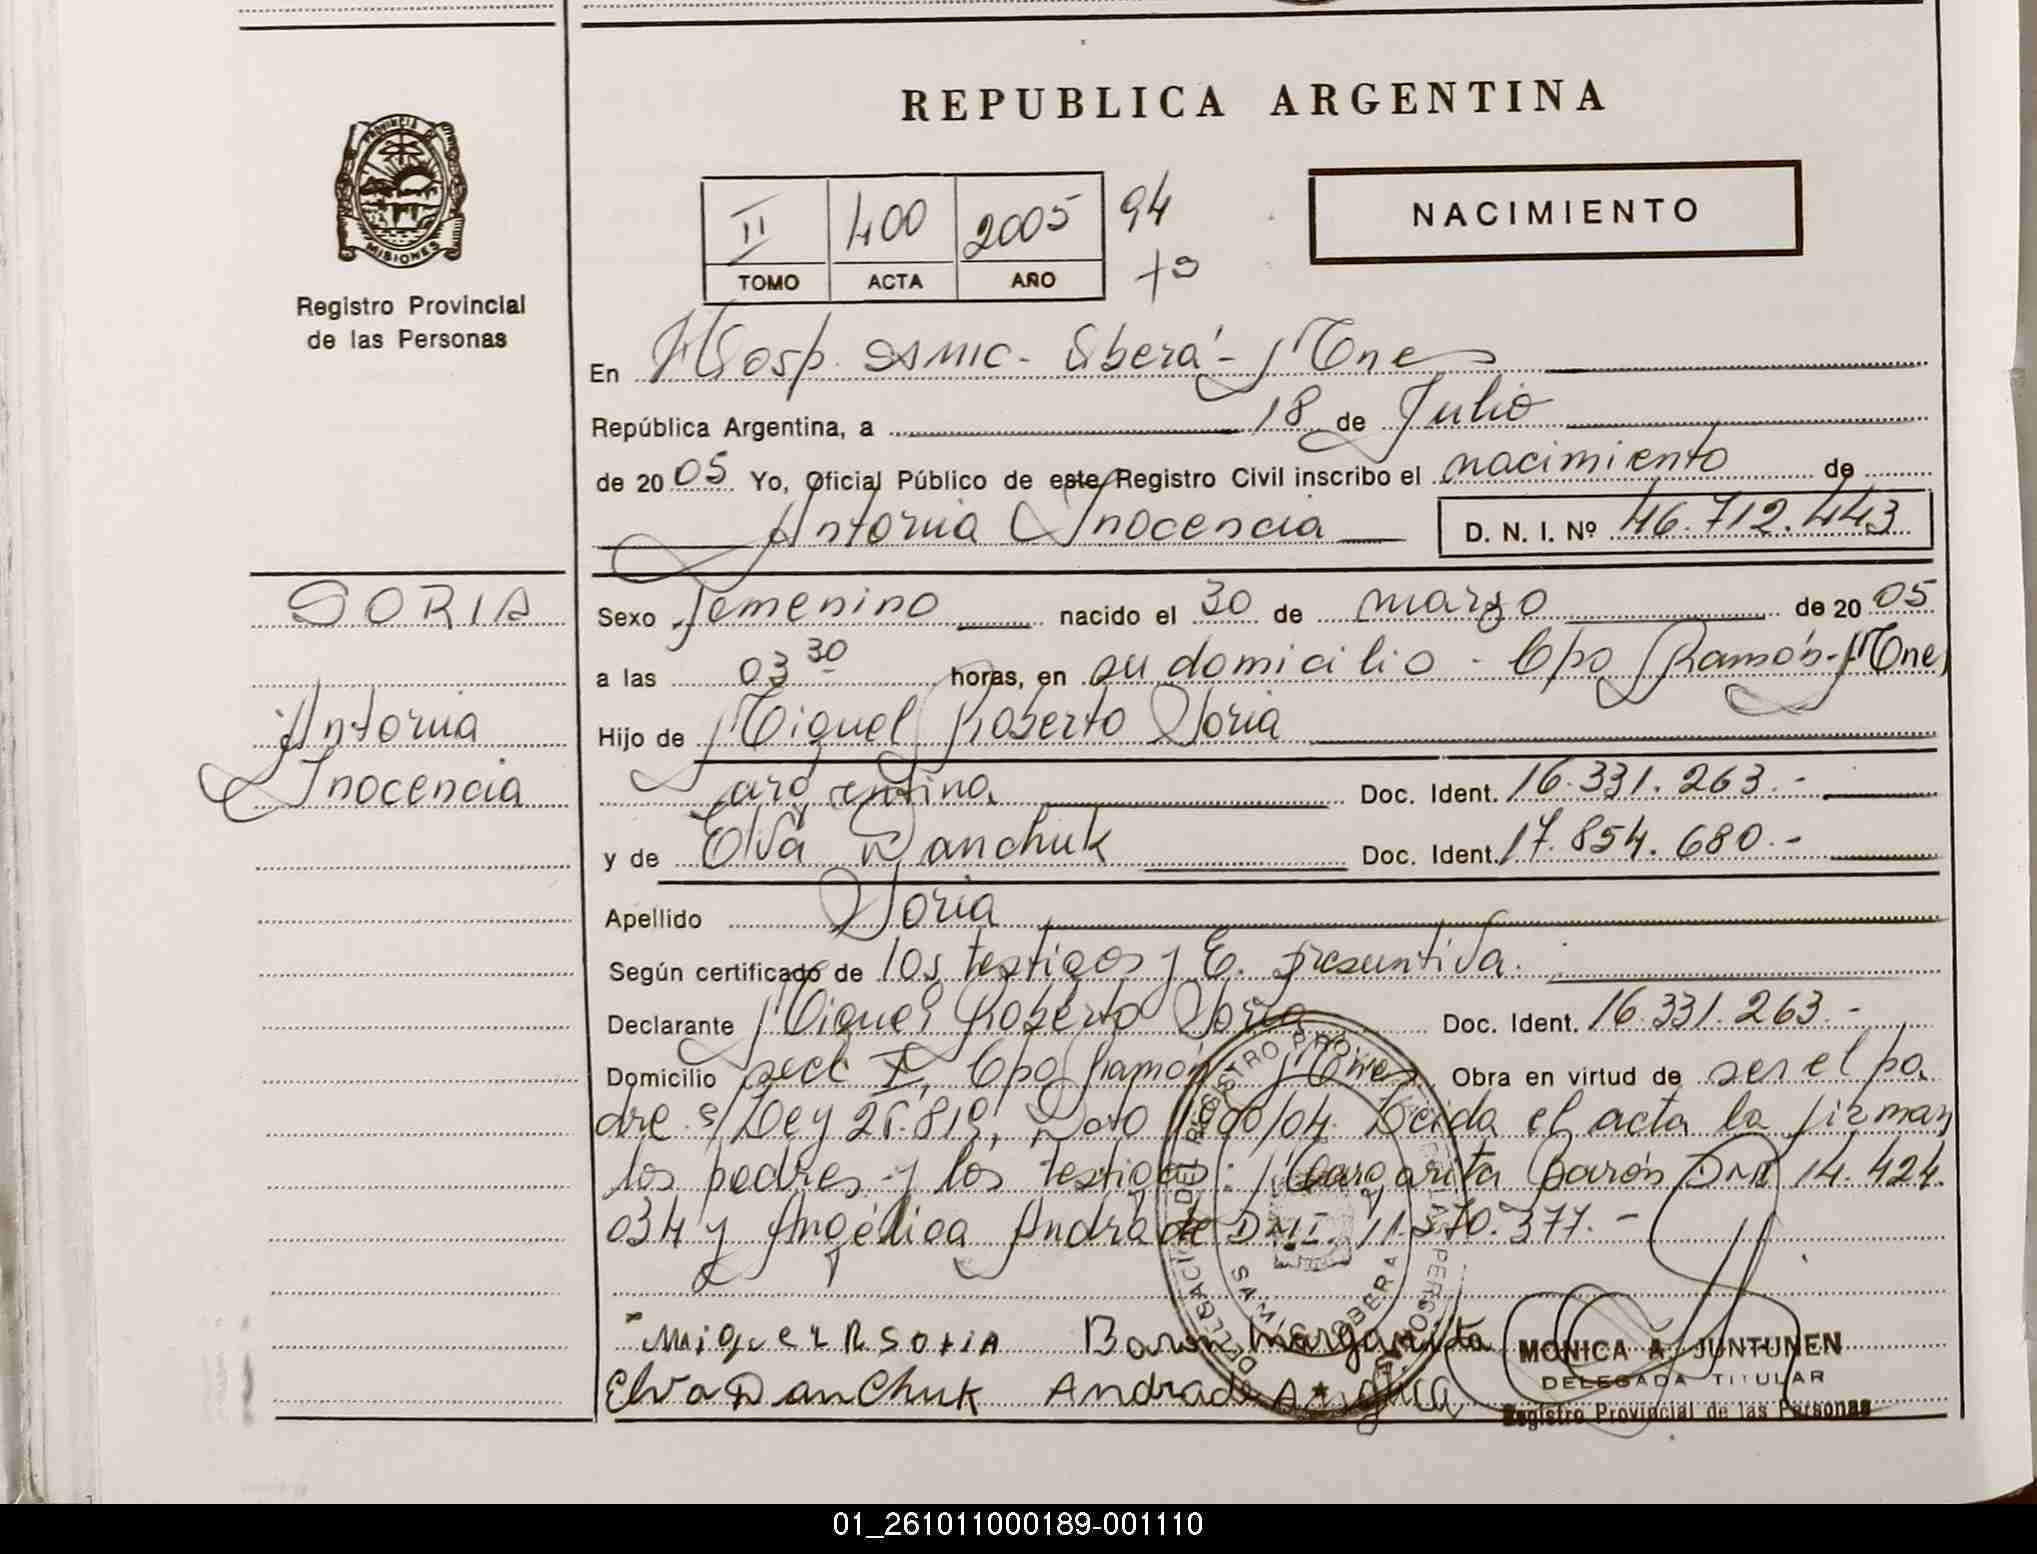 REPUBLICA ARGENTINA
PROVINCIA DE
MISIONES
Registro Provincial
de las Personas
II 400 2005 94
TOMO ACTA AÑO
NACIMIENTO
En Hosp. SAMIC - Oberá - Mnes
República Argentina, a 18 de Julio
de 20 05 Yo, Oficial Público de este Registro Civil inscribo el nacimiento de
Antonia Inocencia D. N. I. Nº 46.712.443
SORIA
Antonia
Inocencia
Sexo femenino nacido el 30 de marzo de 20 05
a las 03 30 horas, en su domicilio - Cpo Ramón - Mnes
Hijo de Miguel Roberto Soria
argentina Doc. Ident. 16.331.263.-
y de Elva Danchuk Doc. Ident. 17.854.680.-
Apellido Soria
Según certificado de los testigos y E. presuntiva.
Declarante Miguel Roberto Soria Doc. Ident. 16.331.263.-
Domicilio secc I, Cpo Ramón Mnes Obra en virtud de ser el pa
dre s/ Ley 25.819, Dto /04. Leida el acta la firman
los padres y los testigos: Margarita Barón DNI 14.424.
034 y Angélica Andrade DNI. 11.370.377.-
Miguel R Soria Baron Margarita
Elva Danchuk Andrade Angelica
MONICA A. JUNTUNEN
DELEGADA TITULAR
Registro Provincial de las Personas
01_261011000189-001110